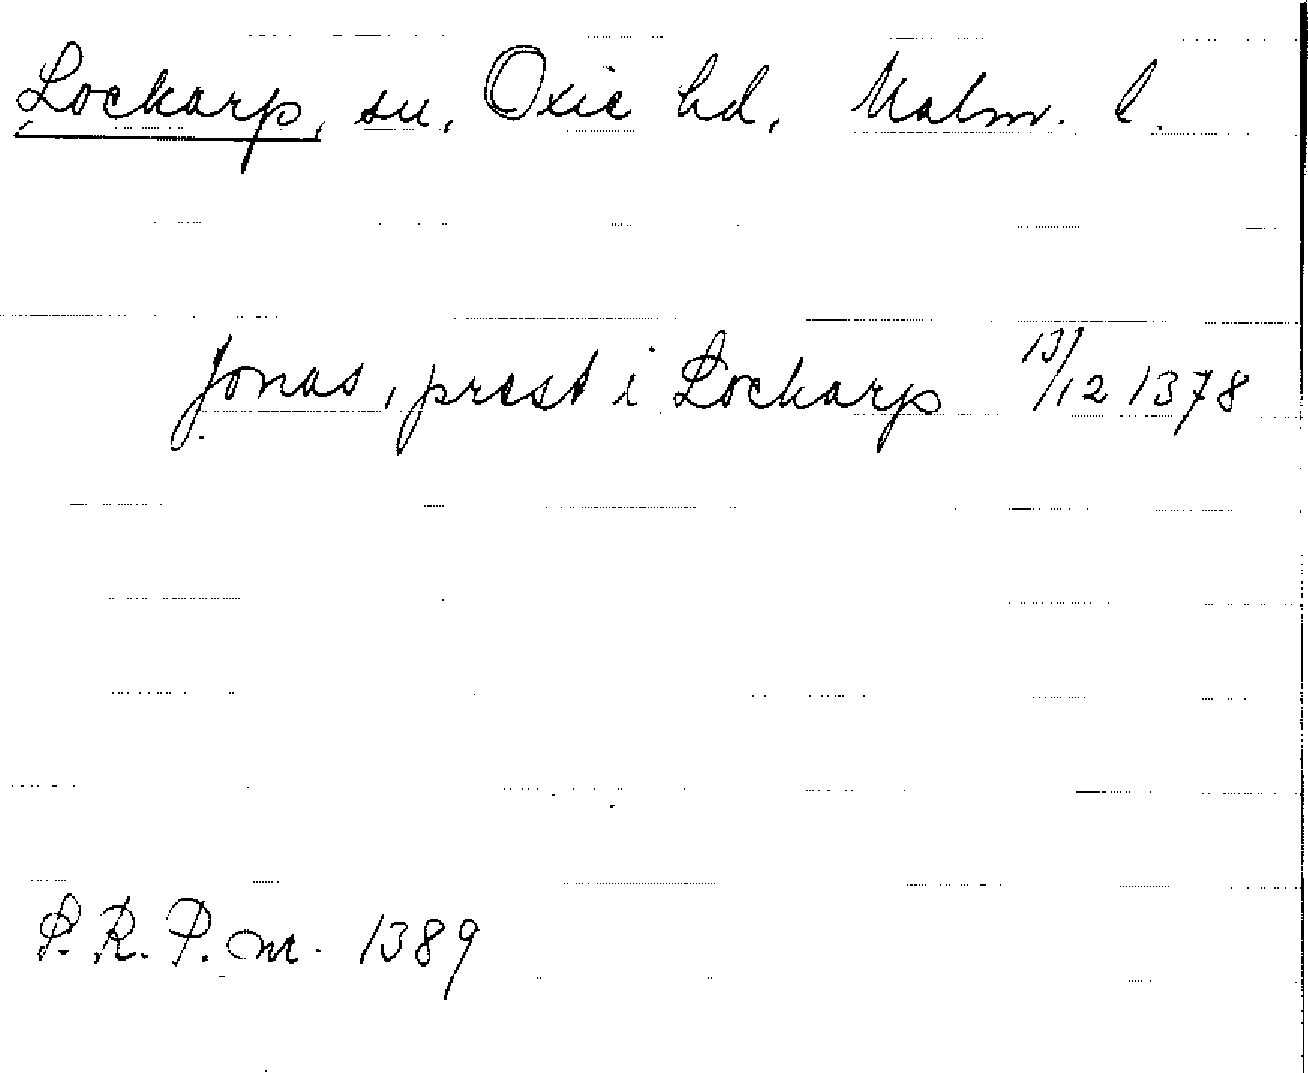 Lockarp, sn, Oxie hd, Malm. l.
Jonas, präst i Lockarp 13/12 1378
P. R. P. nr. 1389